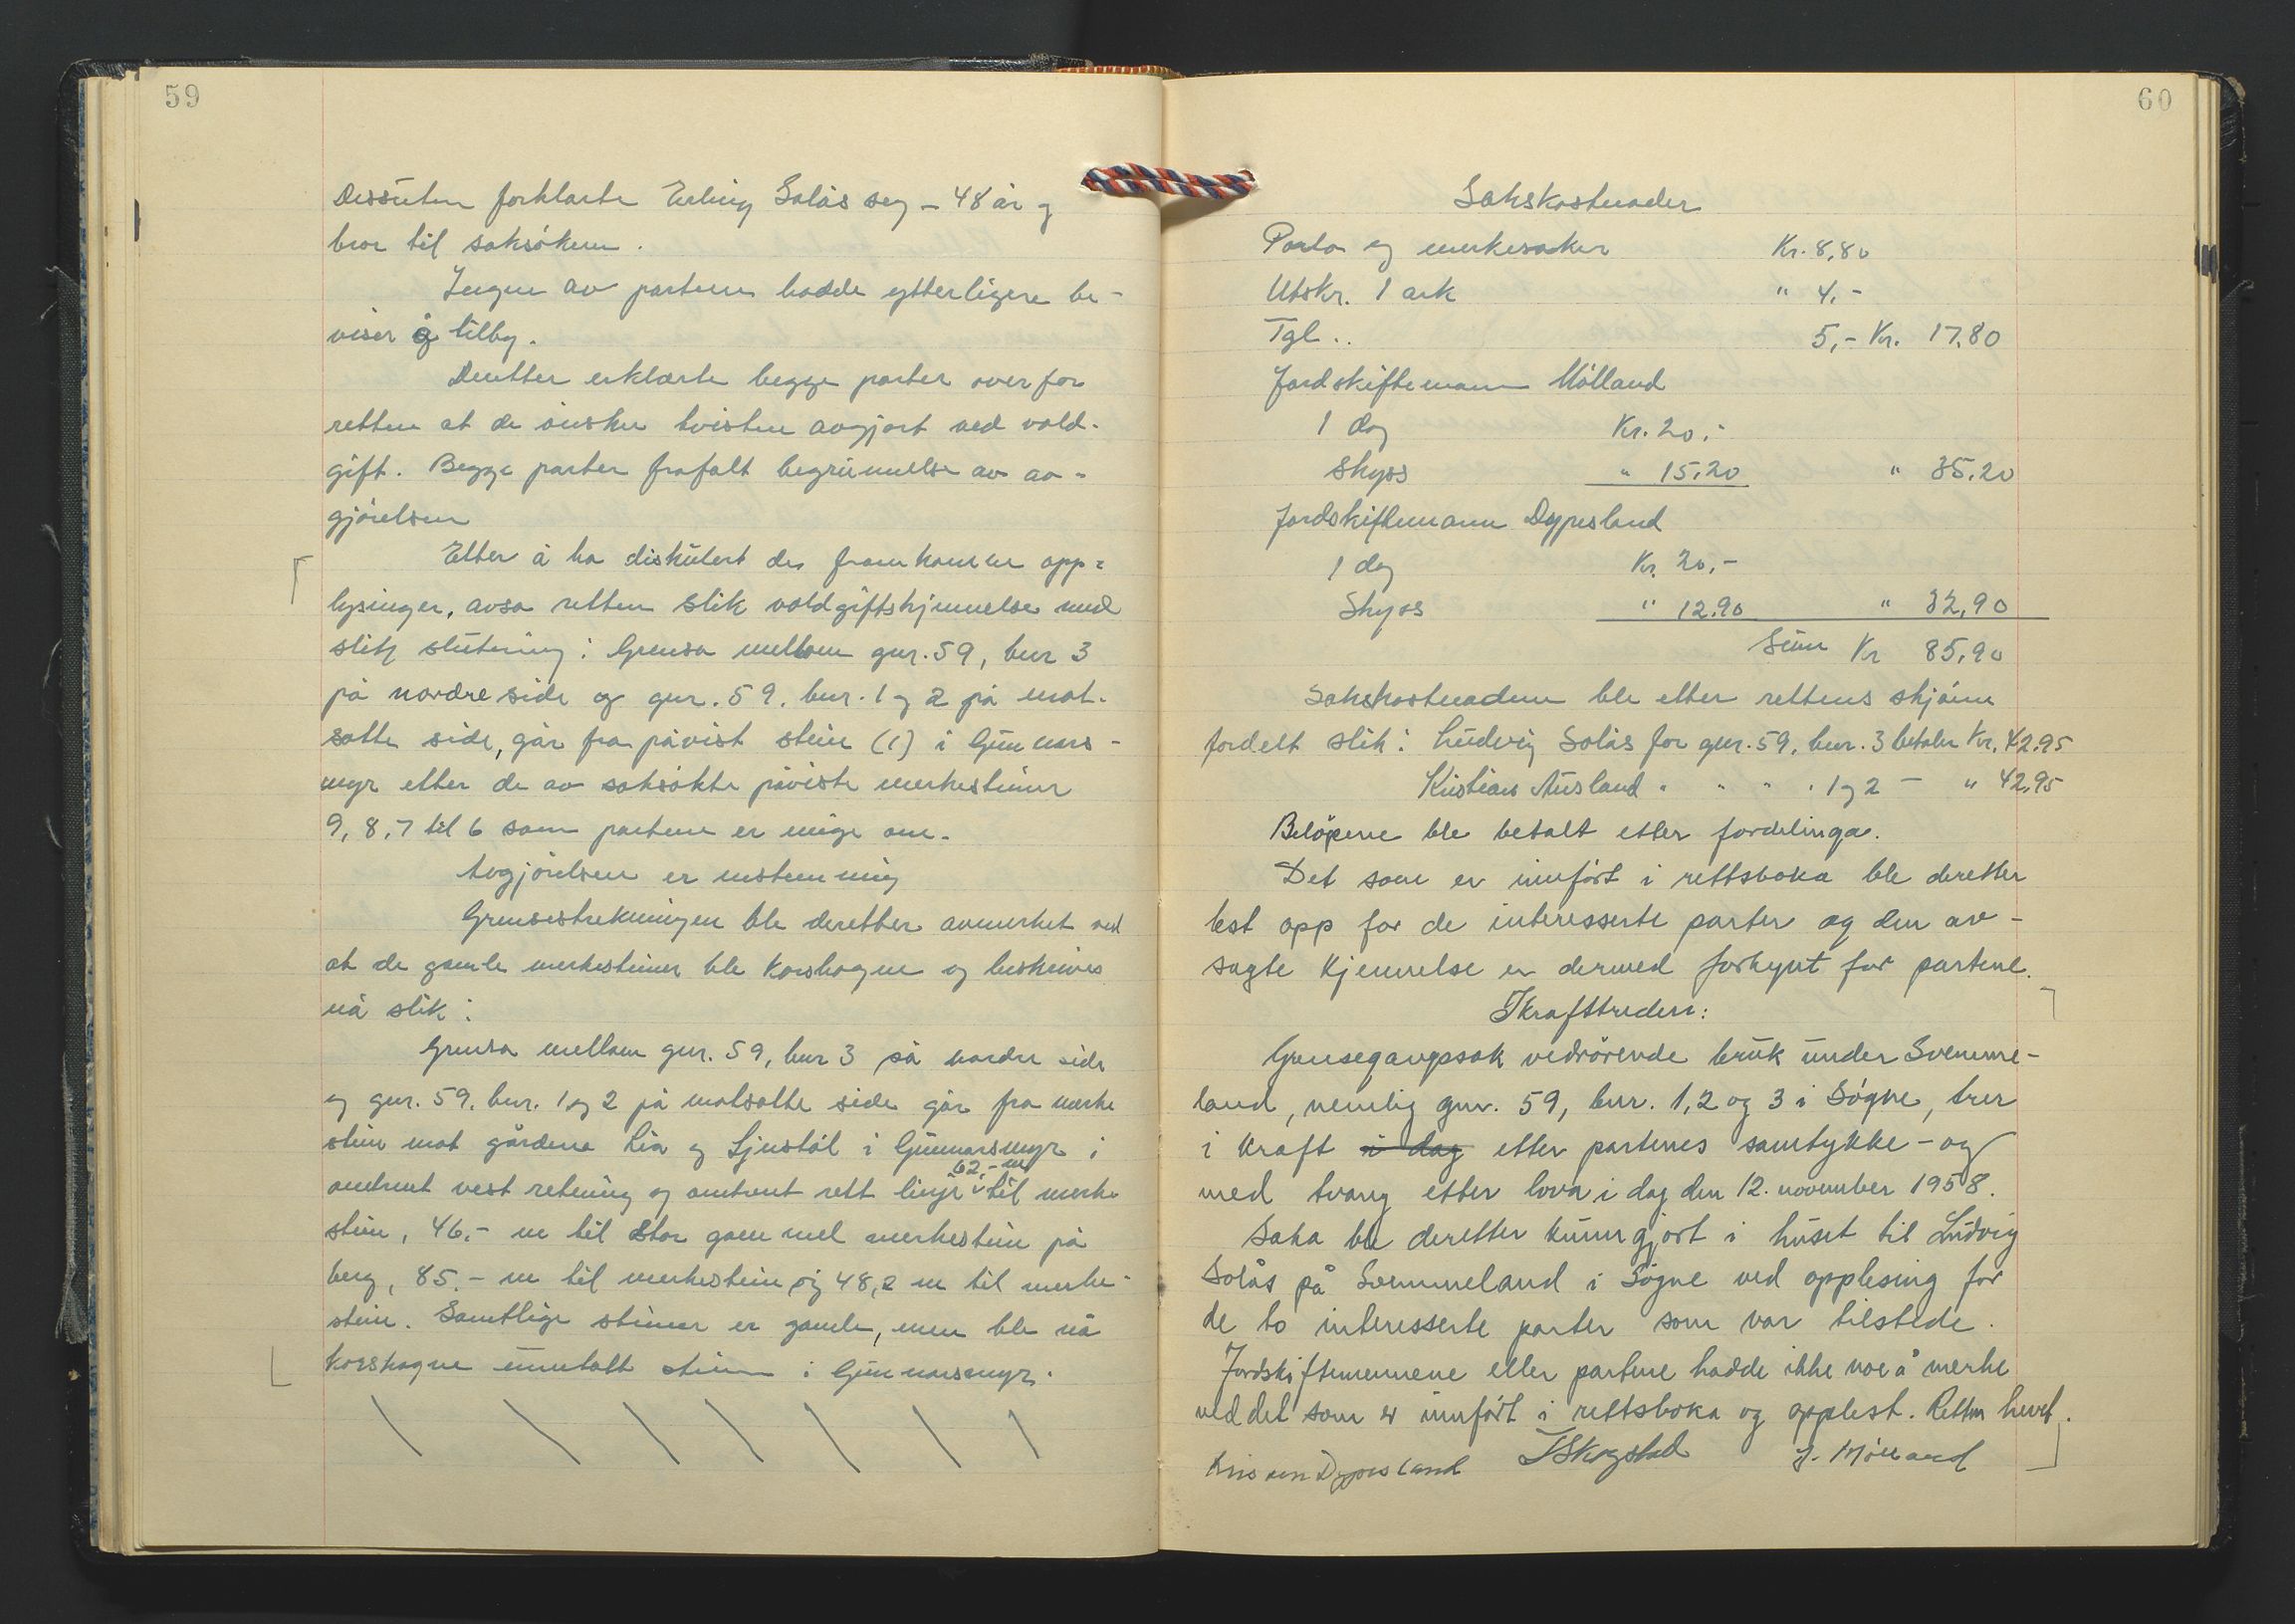 59
Dessuten forklarte Erling Solås seg - 48 år og
bror til saksøkeren.
Ingen av partene hadde ytterligere be-
viser å tilby.
Deretter erklærte begge parter overfor
retten at de ønsker tvisten avgjort ved vold-
gift. Begge parter frafalt begrunnelse av av-
gjørelsen
Etter å ha diskutert de framkomne opp-
lysinger, avsa retten slik voldgiftskjennelse med
slik slutning: Grensa mellom gnr. 59, bnr 3
på nordre side og gnr. 59. bnr. 1 og 2 på mot-
satte side, går fra påvist stein (1) i Gunnars-
myr etter de av saksøkte påviste merkesteiner
9, 8, 7 til 6 som partene er enige om.
Avgjørelsen er enstemmig
Grensestrekningen ble deretter avmerket ved
at de gamle merkesteiner ble korshogne og beskrives
nå slik:
Grensa mellom gnr. 59, bnr 3 på nordre side
og gnr. 59. bnr. 1 og 2 på motsatte side går fra merke
stein mot gårdene Lia og Ljustøl i Gunnarsmyr i
omtrent vest retning og omtrent rett linje 62,- m til merke
stein, 46.- m til stor gammel merkestein på
berg, 85.- m til merkestein og 48,2 m til merke-
stein. Samtlige steiner er gamle, men ble nå
korshogne unntatt stein i Gunnarsmyr.
60
Sakskostnader
Porto og merkesaker Kr. 8,80
Utskr. 1 ark " 4,-
Tgl.. 5,- Kr. 17.80
Jordskiftemann Mølland
1 dag Kr. 20,-
Skyss " 15,20 " 35,20
Jordskiftemann Dypesland
1 dag Kr. 20,-
Skyss " 12.90 " 32,90
Sum Kr 85,90
Sakskostnadene ble etter rettens skjønn
fordelt slik: Ludvig Solås for gnr. 59, bnr. 3 betaler Kr. 42,95
Kristian Ausland " " " " 1 og 2 - " 42,95
Beløpene ble betalt etter fordelinga.
Det som er innført i rettsboka ble deretter
lest opp for de interesserte parter og den av-
sagte kjennelse er dermed forkynt for partene.
Ikrafttreden:
Grensegangssak vedrørende bruk under Svenne-
land, nemlig gnr. 59, bnr. 1, 2 og 3 i Søgne, trer
i kraft i dag etter partenes samtykke - og
med tvang etter lova i dag den 12. november 1958.
Saka ble deretter kunngjort i huset til Ludvig
Solås på Svenneland i Søgne ved opplesing for
de to interesserte parter som var tilstede.
Jordskiftemennene eller partene hadde ikke noe å merke
ved det som er innført i rettsboka og opplest. Retten hevet.
Dypesland TSkogstad J. Mølland